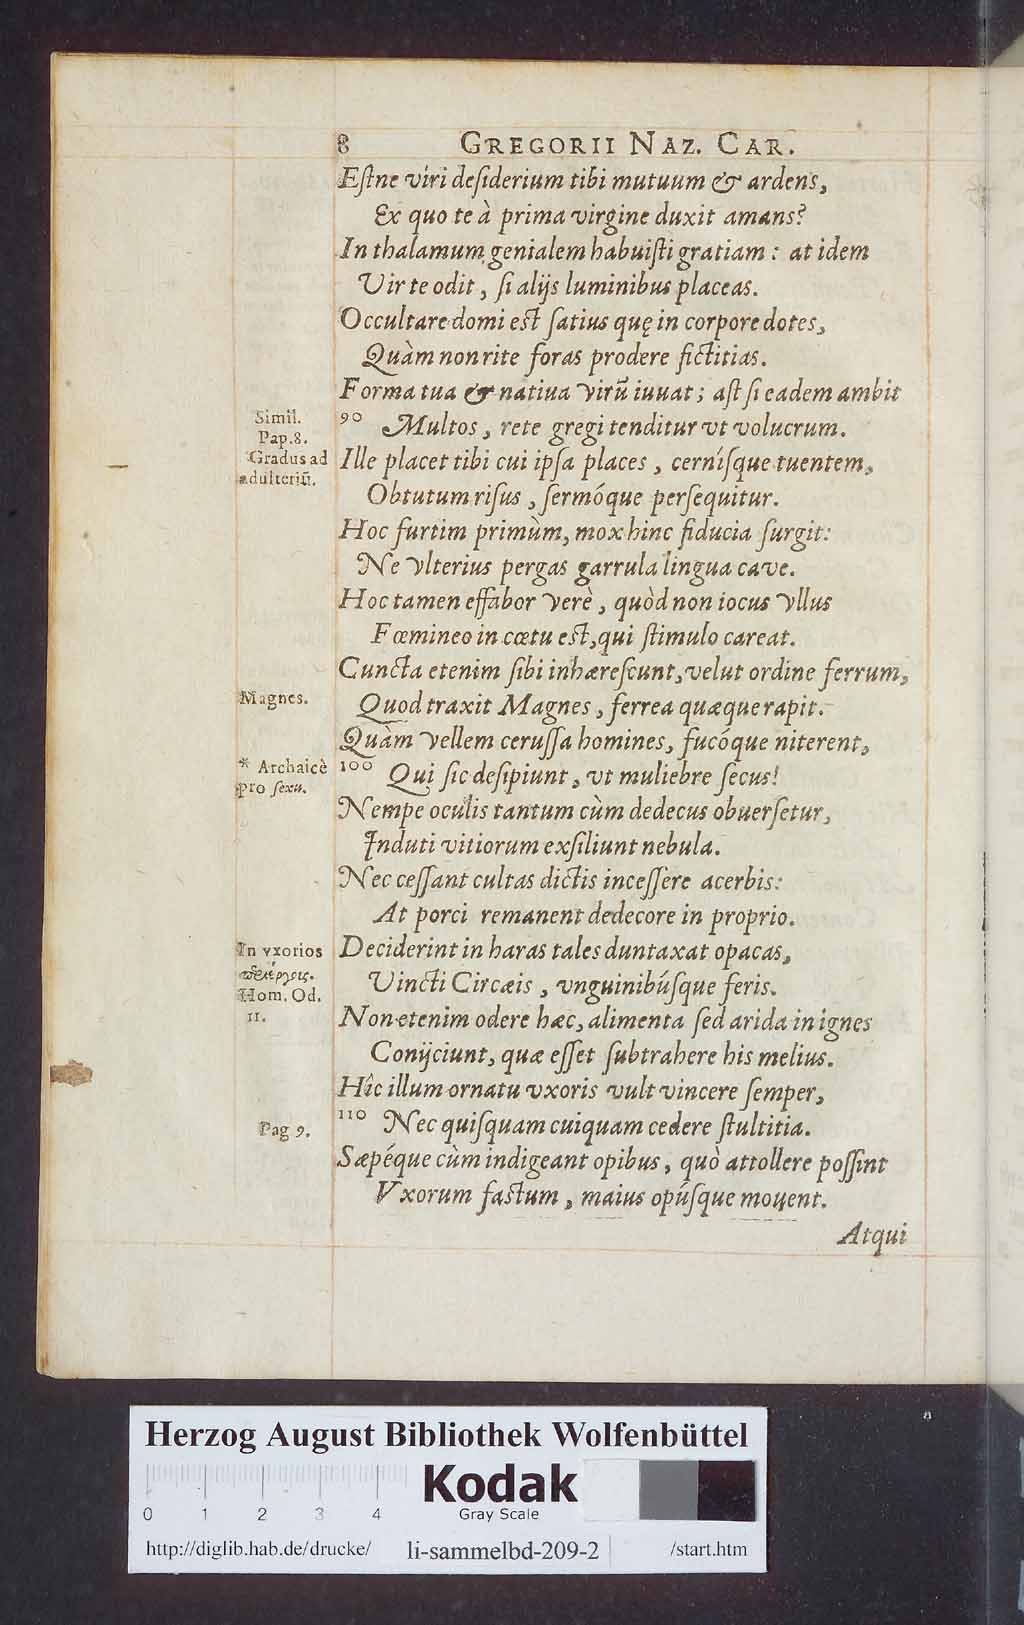 8 GREGORII NAZ. CAR.
Eſtne viri deſiderium tibi mutuum & ardens,
Ex quo te à prima virgine duxit amans?
In thalamum genialem habuiſti gratiam: at idem
Vir te odit, ſi alijs luminibus placeas.
Occultare domi eſt ſatius quę in corpore dotes,
Quàm non rite foras prodere fictitias.
Forma tua & natiua virũ iuuat; aſt ſi eadem ambit
Simil.
Pap. 8.
90 Multos, rete gregi tenditur vt volucrum.
Gradus ad
adulteriũ.
Ille placet tibi cui ipſa places, cerníſque tuentem,
Obtutum riſus, ſermóque perſequitur.
Hoc furtim primùm, mox hinc fiducia ſurgit:
Ne vlterius pergas garrula lingua cave.
Hoc tamen effabor verè, quòd non iocus vllus
Fœmineo in cœtu eſt, qui ſtimulo careat.
Cuncta etenim ſibi inhæreſcunt, velut ordine ferrum,
Magnes.
Quod traxit Magnes, ferrea quæque rapit.
Quàm vellem ceruſſa homines, fucóque niterent,
* Archaicè
pro ſexu.
100 Qui ſic deſipiunt, vt muliebre ſecus!
Nempe oculis tantum cùm dedecus obuerſetur,
Induti vitiorum exſiliunt nebula.
Nec ceſſant cultas dictis inceſſere acerbis:
At porci remanent dedecore in proprio.
In vxorios
Hom. Od.
11.
Deciderint in haras tales duntaxat opacas,
Vincti Circæis, vnguinibúſque feris.
Non etenim odere hæc, alimenta ſed arida in ignes
Conijciunt, quæ eſſet ſubtrahere his melius.
Hîc illum ornatu vxoris vult vincere ſemper,
Pag 9.
110 Nec quiſquam cuiquam cedere ſtultitia.
Sæpéque cùm indigeant opibus, quò attollere poſſint
Vxorum faſtum, maius opúſque mouent.
Atqui
Herzog August Bibliothek Wolfenbüttel
Kodak
Gray Scale
0 1 2 3 4
http://diglib.hab.de/drucke/ li-sammelbd-209-2 /start.htm